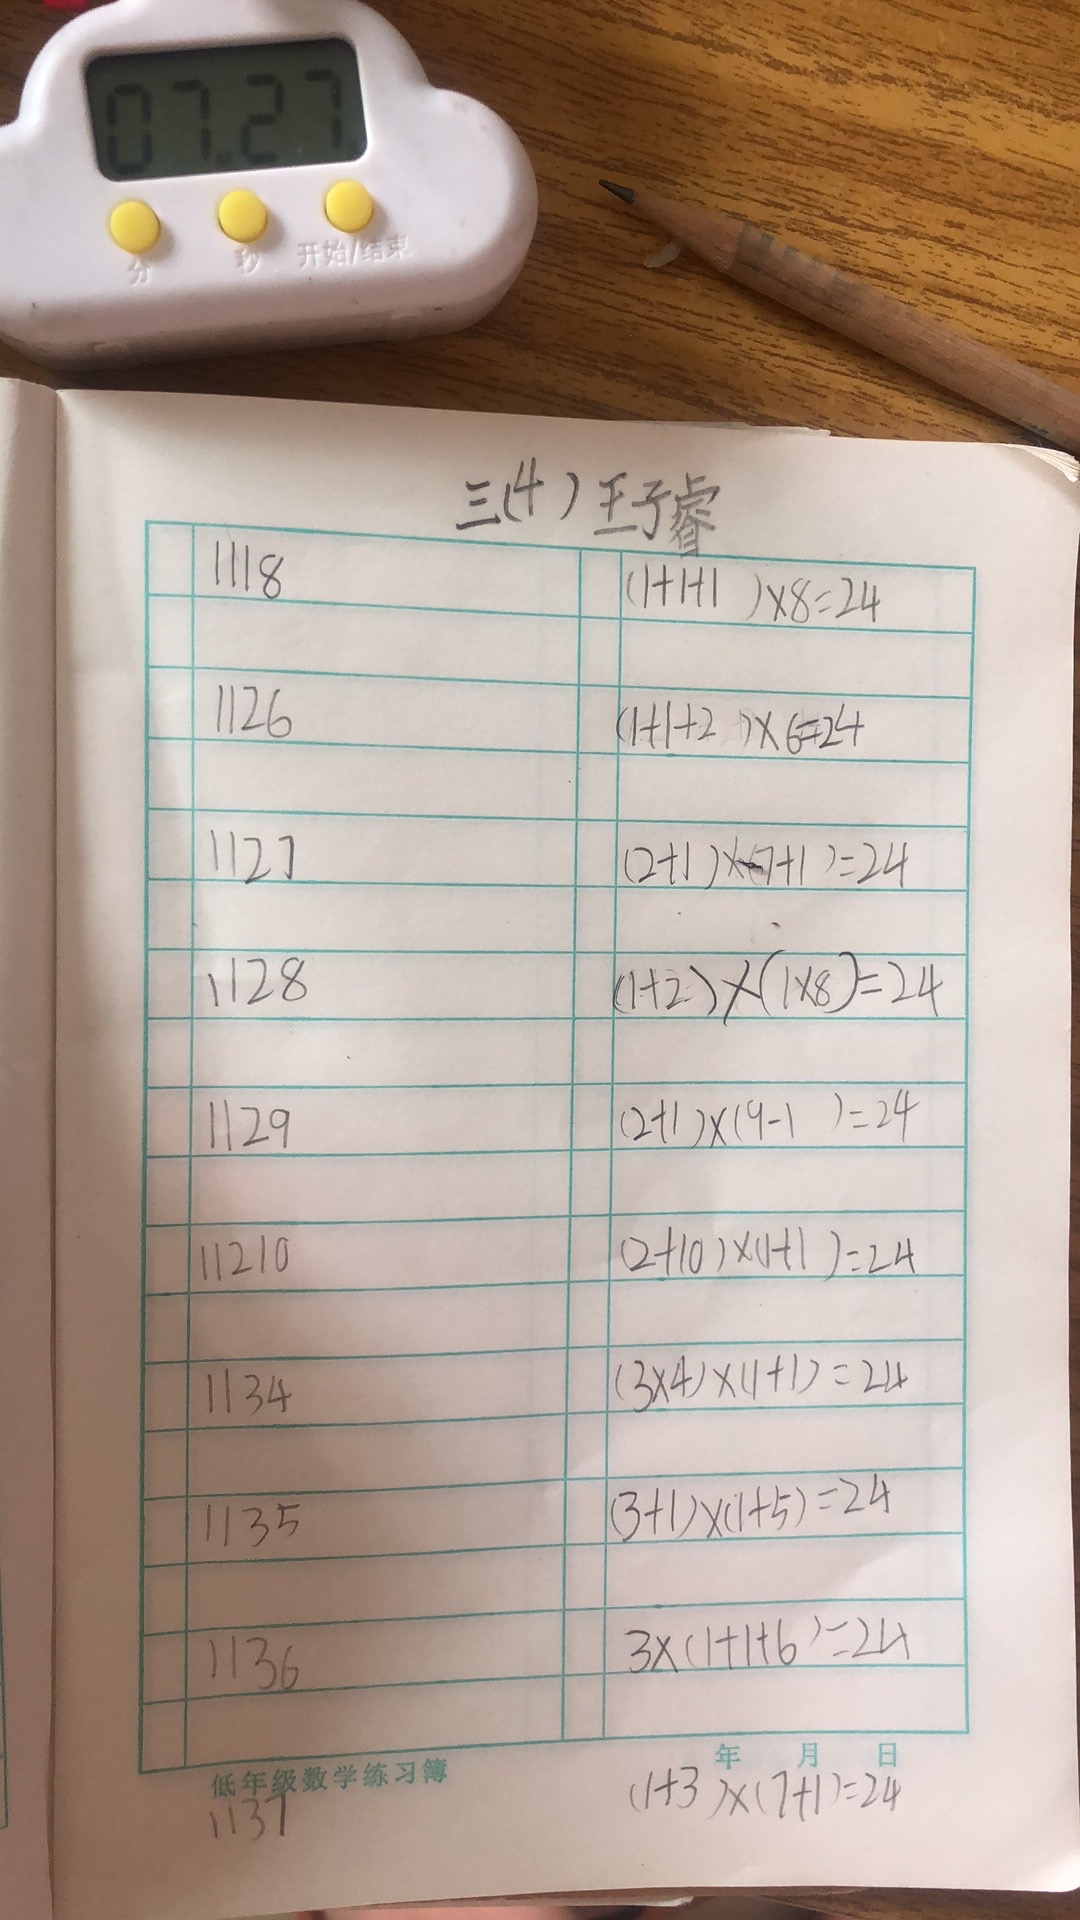 07 27
分 秒 开始/结束
三(4) 王子睿
1118 (1+1+1 )×8=24
1126 (1+1+2 )×6=24
1127 (2+1)×(7+1)=24
1128 (1+2)×(1×8)=24
1129 (2+1)×(9-1 )=24
11210 (2+10)×(1+1 )=24
1134 (3×4)×(1+1)=24
1135 (3+1)×(1+5)=24
1136 3×(1+1+6 )=24
低年级数学练习簿 年 月 日
1137 (1+3)×(7+1)=24